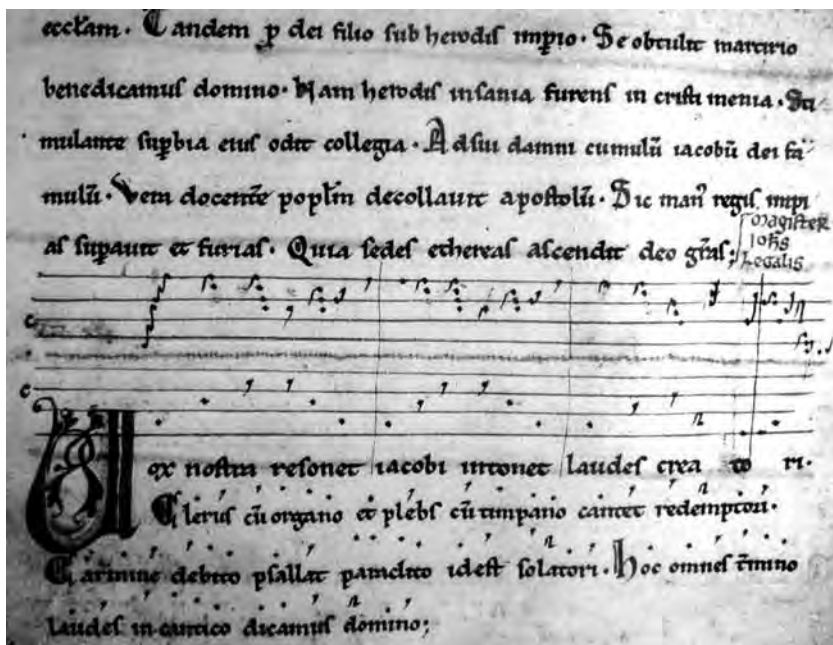 eccłam. Tandem ꝓ dei filio sub herodis imꝑio. Se obtulit martirio
benedicamus domino. Nam herodis insania furens in cristi menia. Sti-
mulante suꝑbia eius odit collegia. Ad sui damni cumulū iacobū dei fa-
mulū. Vera docentē popłm decollauit apostolū. Sic man⁹ regis impi
as suꝑauit et furias. Quia sedes ethereas ascendit deo grās;
magister
ioħs
legalis
Vox nostra resonet iacobi intonet laudes crea to ri.
Clerus cū organo et plebs cū timpano cantet redemptori.
Carmine debito psallat paraclito idest solatori. Hoc omnes t̄mino
laudes in cantico dicamus domino;